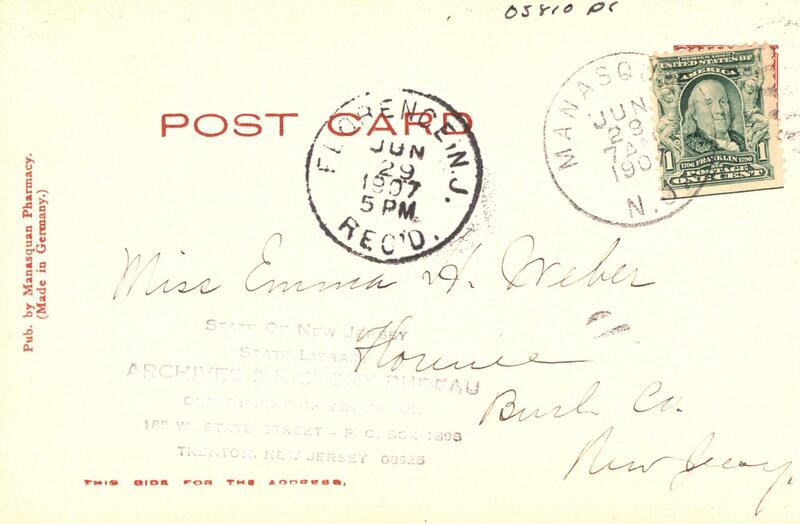 05810 PC
POST CARD
FLORENCE, N.J.
JUN
29
1907
5 PM
REC'D.
MANASQU
JUN
29
7 A
190
N.J.
SERIES 1902
UNITED STATES OF
AMERICA
1706 FRANKLIN 1790
1 POSTAGE 1
ONE CENT
Pub. by Manasquan Pharmacy.
(Made in Germany.)
Miss Emma H. Weber
Florence
Burl. Co.
New Jersey.
STATE OF NEW JERSEY
STATE LIBRARY
ARCHIVES & HISTORY BUREAU
DEPARTMENT OF EDUCATION
185 W. STATE STREET - P. O. BOX 1898
TRENTON, NEW JERSEY 08625
THIS SIDE FOR THE ADDRESS.